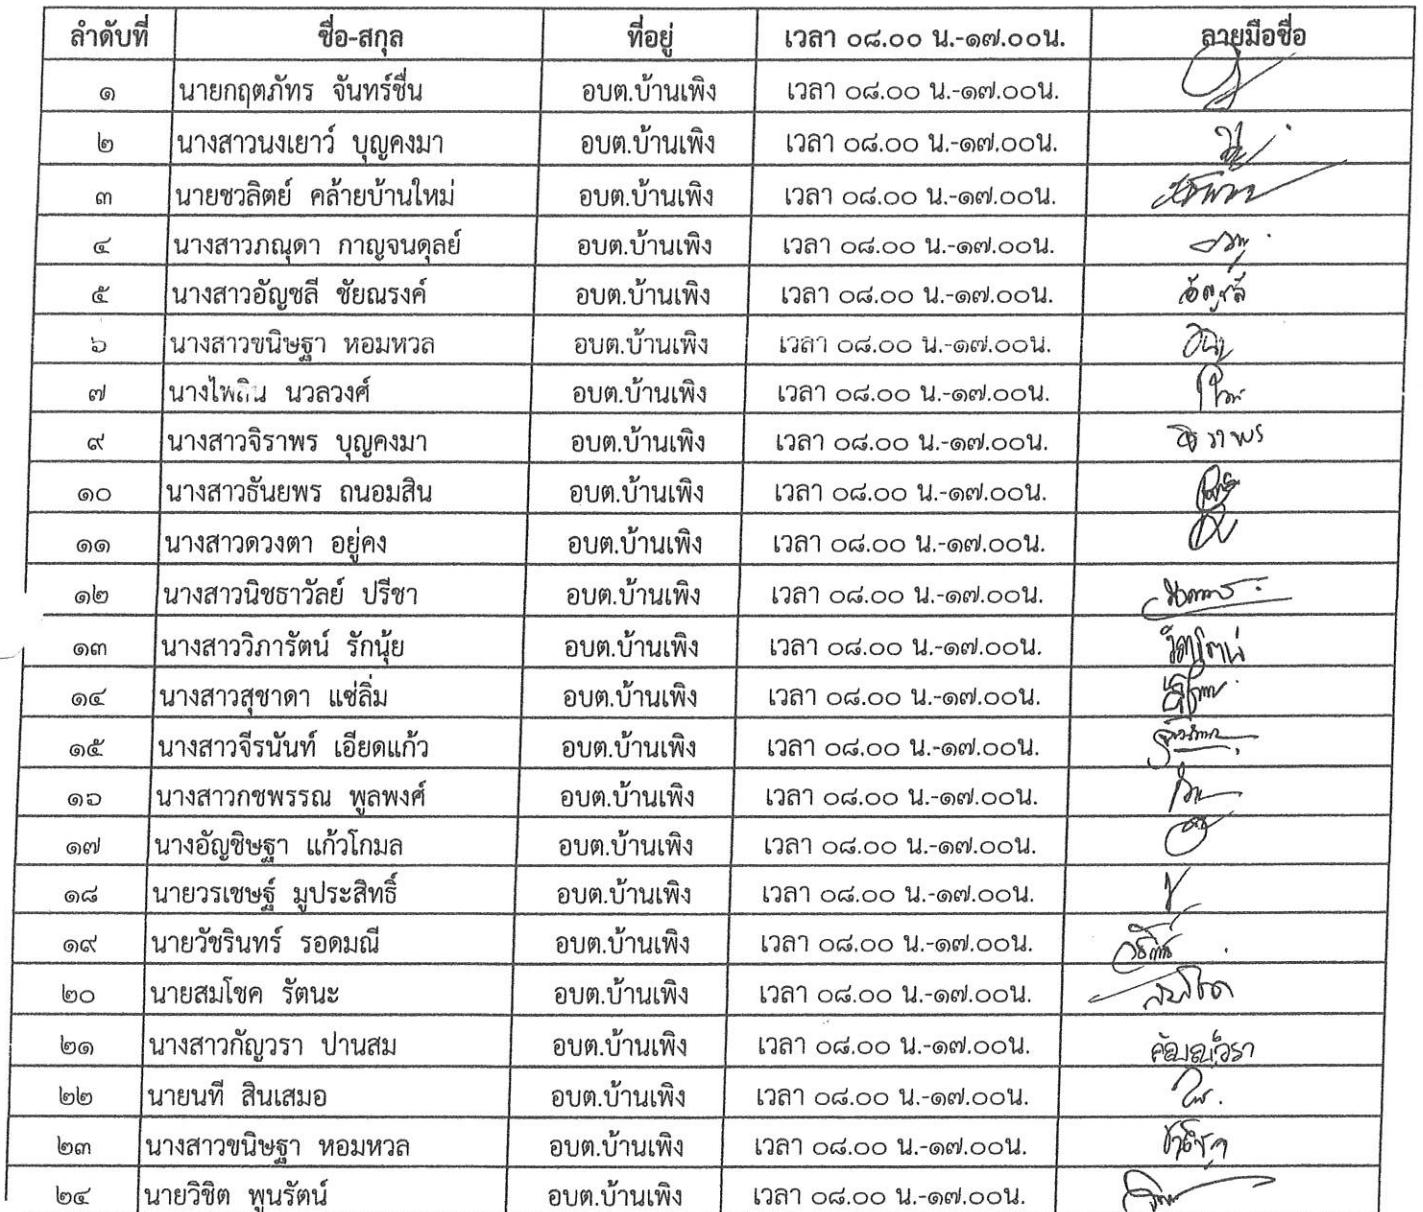 ลำดับที่ ชื่อ-สกุล ที่อยู่ เวลา ๐๘.๐๐ น.-๑๗.๐๐น. ลายมือชื่อ
๑ นายกฤตภัทร จันทร์ชื่น อบต.บ้านเพิง เวลา ๐๘.๐๐ น.-๑๗.๐๐น.
๒ นางสาวนงเยาว์ บุญคงมา อบต.บ้านเพิง เวลา ๐๘.๐๐ น.-๑๗.๐๐น.
๓ นายชวลิตย์ คล้ายบ้านใหม่ อบต.บ้านเพิง เวลา ๐๘.๐๐ น.-๑๗.๐๐น.
๔ นางสาวภณุดา กาญจนดุลย์ อบต.บ้านเพิง เวลา ๐๘.๐๐ น.-๑๗.๐๐น.
๕ นางสาวอัญชลี ชัยณรงค์ อบต.บ้านเพิง เวลา ๐๘.๐๐ น.-๑๗.๐๐น. อัญชลี
๖ นางสาวขนิษฐา หอมหวล อบต.บ้านเพิง เวลา ๐๘.๐๐ น.-๑๗.๐๐น.
๗ นางไพลิน นวลวงศ์ อบต.บ้านเพิง เวลา ๐๘.๐๐ น.-๑๗.๐๐น.
๙ นางสาวจิราพร บุญคงมา อบต.บ้านเพิง เวลา ๐๘.๐๐ น.-๑๗.๐๐น. จิราพร
๑๐ นางสาวธันยพร ถนอมสิน อบต.บ้านเพิง เวลา ๐๘.๐๐ น.-๑๗.๐๐น.
๑๑ นางสาวดวงตา อยู่คง อบต.บ้านเพิง เวลา ๐๘.๐๐ น.-๑๗.๐๐น.
๑๒ นางสาวนิชธาวัลย์ ปรีชา อบต.บ้านเพิง เวลา ๐๘.๐๐ น.-๑๗.๐๐น.
๑๓ นางสาววิภารัตน์ รักนุ้ย อบต.บ้านเพิง เวลา ๐๘.๐๐ น.-๑๗.๐๐น.
๑๔ นางสาวสุชาดา แซ่ลิ่ม อบต.บ้านเพิง เวลา ๐๘.๐๐ น.-๑๗.๐๐น.
๑๕ นางสาวจีรนันท์ เอียดแก้ว อบต.บ้านเพิง เวลา ๐๘.๐๐ น.-๑๗.๐๐น.
๑๖ นางสาวกชพรรณ พูลพงศ์ อบต.บ้านเพิง เวลา ๐๘.๐๐ น.-๑๗.๐๐น.
๑๗ นางอัญชิษฐา แก้วโกมล อบต.บ้านเพิง เวลา ๐๘.๐๐ น.-๑๗.๐๐น.
๑๘ นายวรเชษฐ์ มูประสิทธิ์ อบต.บ้านเพิง เวลา ๐๘.๐๐ น.-๑๗.๐๐น.
๑๙ นายวัชรินทร์ รอดมณี อบต.บ้านเพิง เวลา ๐๘.๐๐ น.-๑๗.๐๐น.
๒๐ นายสมโชค รัตนะ อบต.บ้านเพิง เวลา ๐๘.๐๐ น.-๑๗.๐๐น. สมโชค
๒๑ นางสาวกัญวรา ปานสม อบต.บ้านเพิง เวลา ๐๘.๐๐ น.-๑๗.๐๐น.
๒๒ นายนที สินเสมอ อบต.บ้านเพิง เวลา ๐๘.๐๐ น.-๑๗.๐๐น.
๒๓ นางสาวขนิษฐา หอมหวล อบต.บ้านเพิง เวลา ๐๘.๐๐ น.-๑๗.๐๐น.
๒๔ นายวิชิต พูนรัตน์ อบต.บ้านเพิง เวลา ๐๘.๐๐ น.-๑๗.๐๐น.